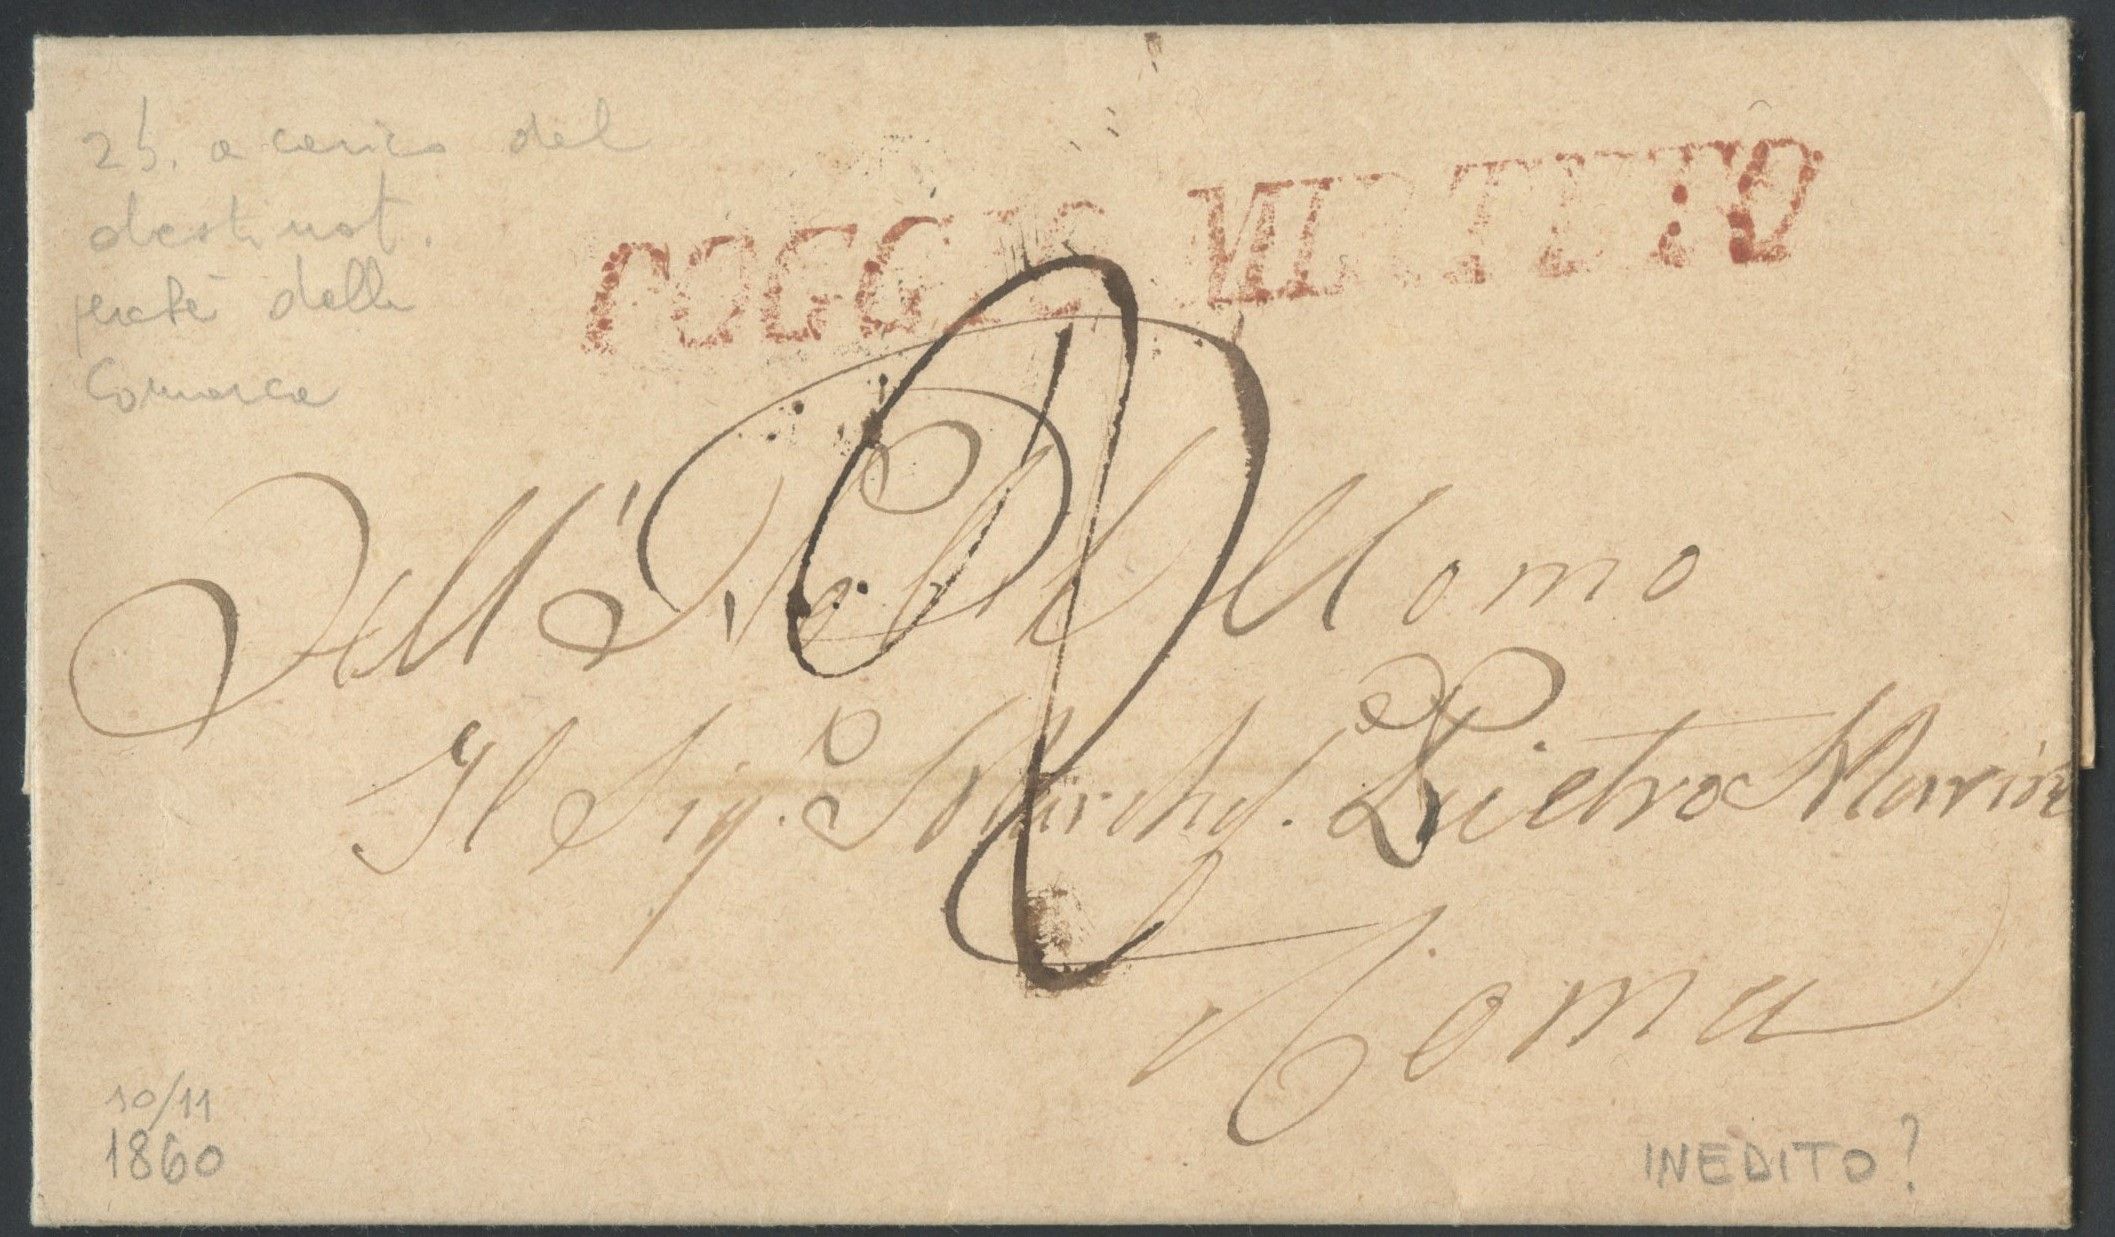 2 b. a carico del
destinat.
perché della
Comarca
POGGIO MIRTETO
2
Dell'
Nobil Uomo
Il Sig. Marche. Pietro Marini
Roma
10/11
1860
INEDITO?